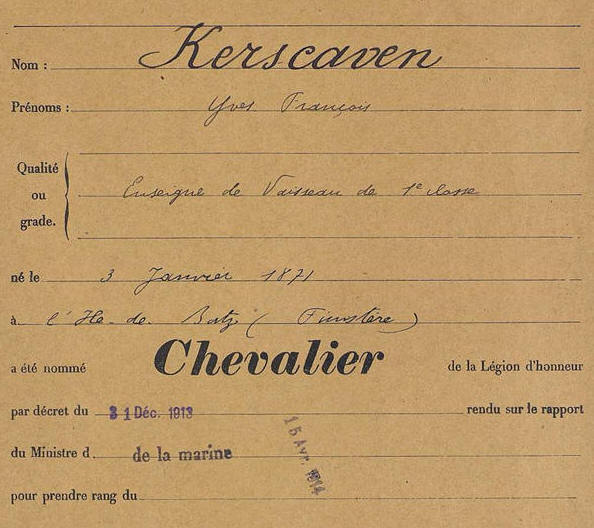 Nom : Kerscaven
Prénoms : Yves François
Qualité
ou
grade. Enseigne de Vaisseau de 1e classe
né le 3 Janvier 1871
à l'Ile de Batz (Finistère)
a été nommé Chevalier de la Légion d'honneur
par décret du 31 Déc. 1913 rendu sur le rapport
du Ministre d de la marine
15 Avr. 1914
pour prendre rang du